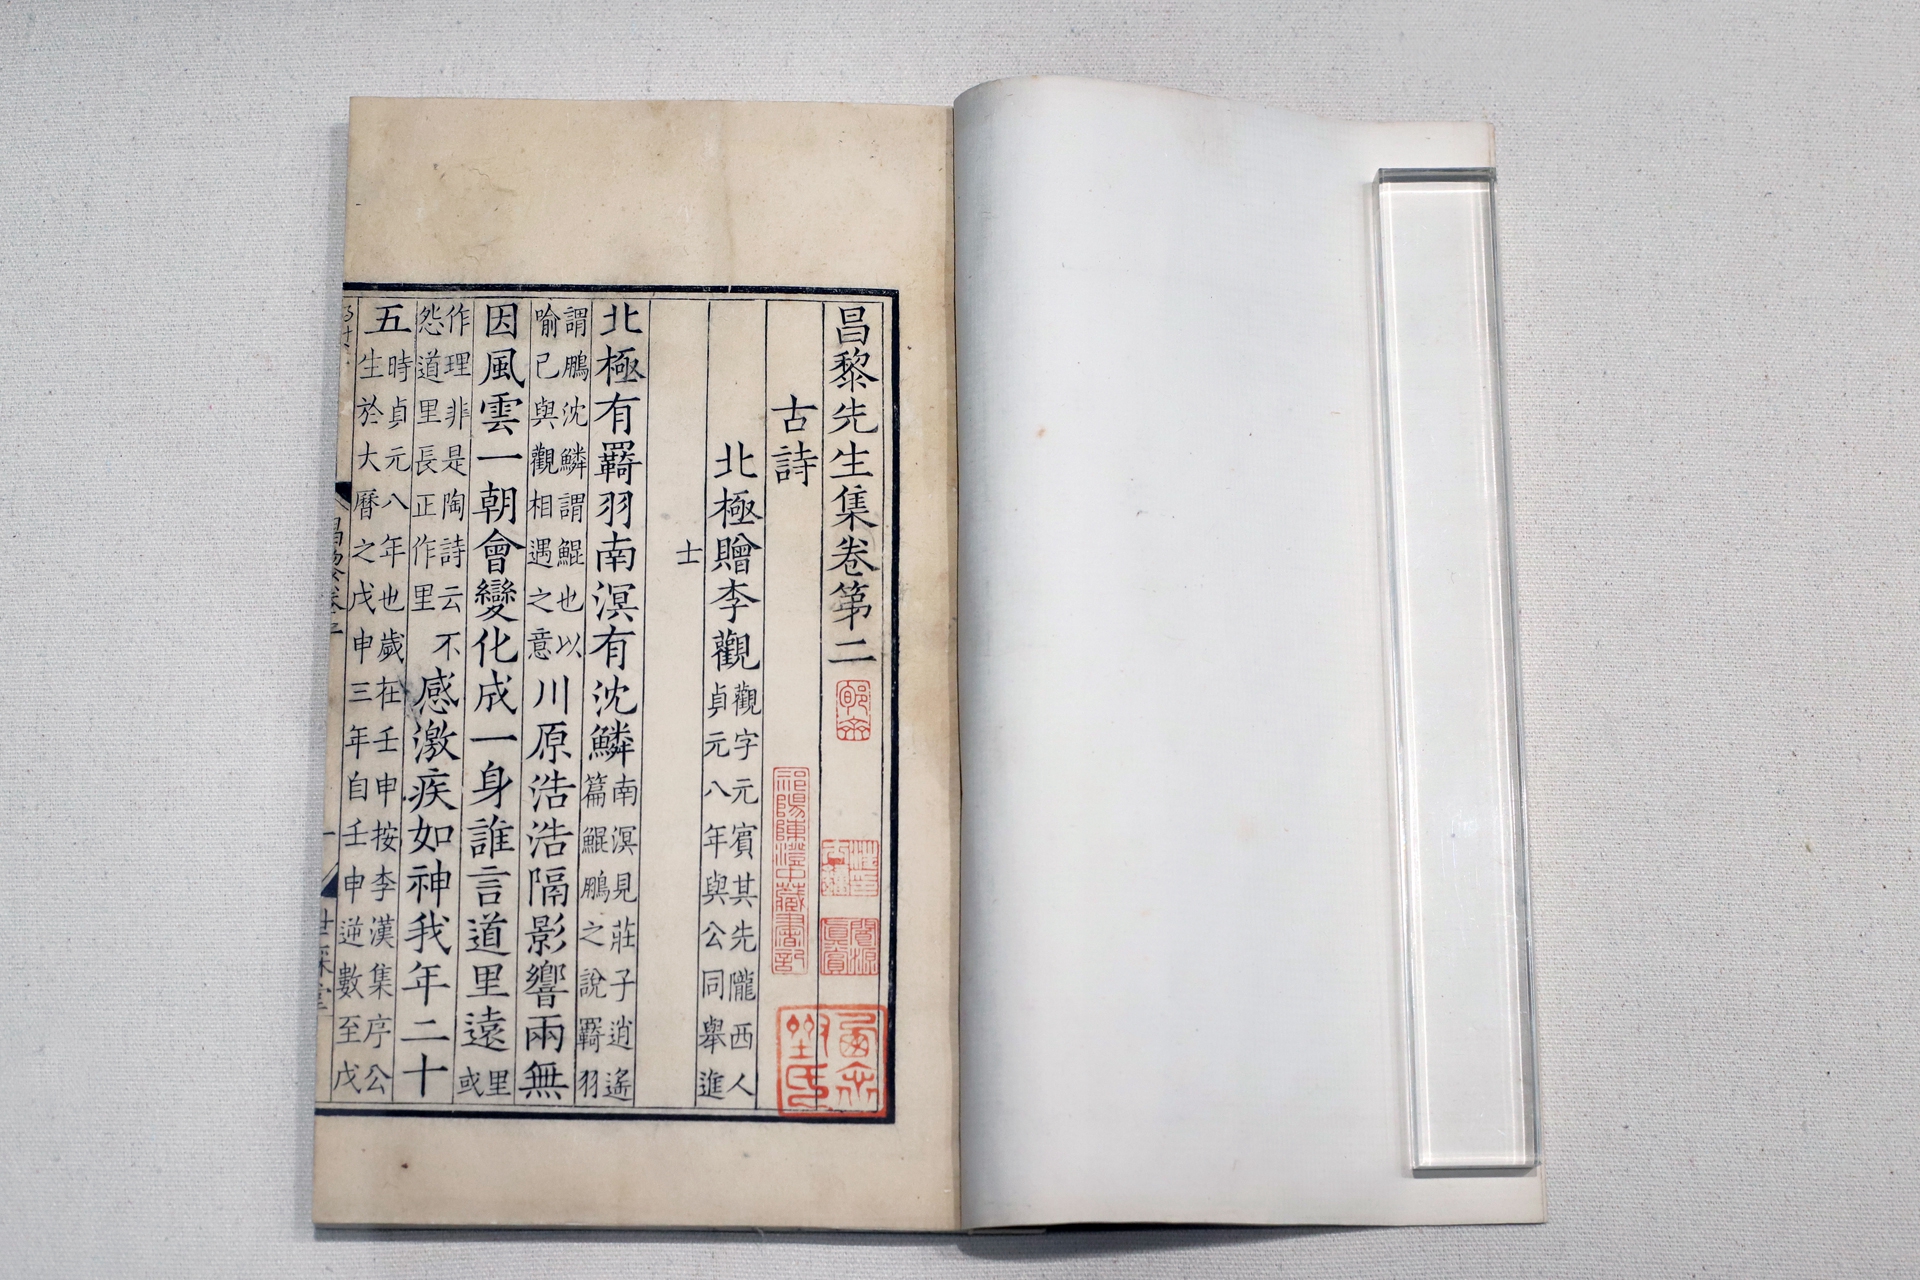 昌黎先生集卷第二
古詩
北極贈李觀觀字元賓其先隴西人貞元八年與公同舉進
士
北極有羇羽南溟有沈鱗南溟見莊子逍遙篇鯤鵬之說羇羽
謂鵬沈鱗謂鯤也以喻己與觀相遇之意川原浩浩隔影響兩無
因風雲一朝會變化成一身誰言道里遠里或
作理非是陶詩云不怨道里長正作里感激疾如神我年二十
五時貞元八年也歲在壬申按李漢集序公生於大曆之戊申三年自壬申逆數至戊
祁陽陳澄中藏書記